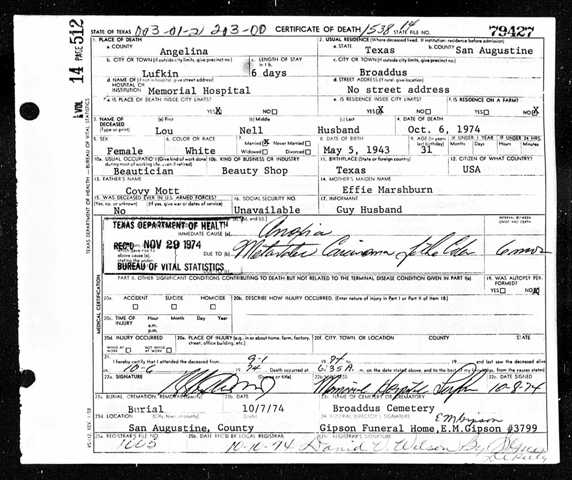 STATE OF TEXAS 003-01-21 203-00 CERTIFICATE OF DEATH 1538 14 STATE FILE NO. 79427
VOL 14 PAGE 512
TEXAS DEPARTMENT OF HEALTH — BUREAU OF VITAL STATISTICS
1. PLACE OF DEATH
a. COUNTY
Angelina
2. USUAL RESIDENCE (Where deceased lived. If institution: residence before admission)
a. STATE
Texas
b. COUNTY
San Augustine
b. CITY OR TOWN (If outside city limits, give precinct no.)
Lufkin
c. LENGTH OF STAY
6 days
c. CITY OR TOWN (If outside city limits, give precinct no.)
Broaddus
d. NAME OF (If not in hospital, give street address)
HOSPITAL OR INSTITUTION
Memorial Hospital
d. STREET ADDRESS (If rural, give location)
No street address
e. IS PLACE OF DEATH INSIDE CITY LIMITS?
YES X NO
e. IS RESIDENCE INSIDE CITY LIMITS?
YES NO X
f. IS RESIDENCE ON A FARM?
YES NO X
3. NAME OF DECEASED
(Type or print)
(a) First
Lou
(b) Middle
Nell
(c) Last
Husband
4. DATE OF DEATH
Oct. 6, 1974
5. SEX
Female
6. COLOR OR RACE
White
7. Married X Never Married
Widowed Divorced
8. DATE OF BIRTH
May 5, 1943
9. AGE (In years last birthday)
31
IF UNDER 1 YEAR
Months Days
IF UNDER 24 HRS.
Hours Min.
10a. USUAL OCCUPATION (Give kind of work done during most of working life, even if retired)
Beautician
10b. KIND OF BUSINESS OR INDUSTRY
Beauty Shop
11. BIRTHPLACE (State or foreign country)
Texas
12. CITIZEN OF WHAT COUNTRY?
USA
13. FATHER'S NAME
Covy Mott
14. MOTHER'S MAIDEN NAME
Effie Marshburn
15. WAS DECEASED EVER IN U.S. ARMED FORCES?
(Yes, no, or unknown) (If yes, give war or dates of service)
No
16. SOCIAL SECURITY NO.
Unavailable
17. INFORMANT
Guy Husband
TEXAS DEPARTMENT OF HEALTH
REC'D NOV 29 1974
BUREAU OF VITAL STATISTICS
IMMEDIATE CAUSE (a)
Anoxia
DUE TO (b)
Metastatic Carcinoma of the Colon
6 mos
INTERVAL BETWEEN ONSET AND DEATH
MEDICAL CERTIFICATION
PART II. OTHER SIGNIFICANT CONDITIONS CONTRIBUTING TO DEATH BUT NOT RELATED TO THE TERMINAL DISEASE CONDITION GIVEN IN PART I(a)
19. WAS AUTOPSY PERFORMED?
YES NO X
20a. ACCIDENT SUICIDE HOMICIDE
20b. DESCRIBE HOW INJURY OCCURRED. (Enter nature of injury in Part I or Part II of item 18.)
20c. TIME OF INJURY
Hour Month Day Year
a.m.
p.m.
20d. INJURY OCCURRED
WHILE AT WORK NOT WHILE AT WORK
20e. PLACE OF INJURY (e.g., in or about home, farm, factory, street, office building, etc.)
20f. CITY, TOWN, OR LOCATION COUNTY STATE
21. I hereby certify that I attended the deceased from 9-1 19 74
and last saw the deceased alive
10-6 19 74 Death occurred at 6:35 A. m. on the date stated above, and to the best of my knowledge, from the causes stated.
22a. SIGNATURE
Memorial Hospital Lufkin
DATE SIGNED
10-8-74
23a. BURIAL, CREMATION, REMOVAL (Specify)
Burial
23b. DATE
10/7/74
23c. NAME OF CEMETERY OR CREMATORY
Broaddus Cemetery
23d. LOCATION (City, town, or county) (State)
San Augustine, County
24. FUNERAL DIRECTOR'S SIGNATURE
E M Gipson
Gipson Funeral Home, E.M.Gipson #3799
25a. REGISTRAR'S FILE NO.
1665
25b. DATE REC'D BY LOCAL REGISTRAR
10-10-74
25c. REGISTRAR'S SIGNATURE
David V. Wilson By
Deputy